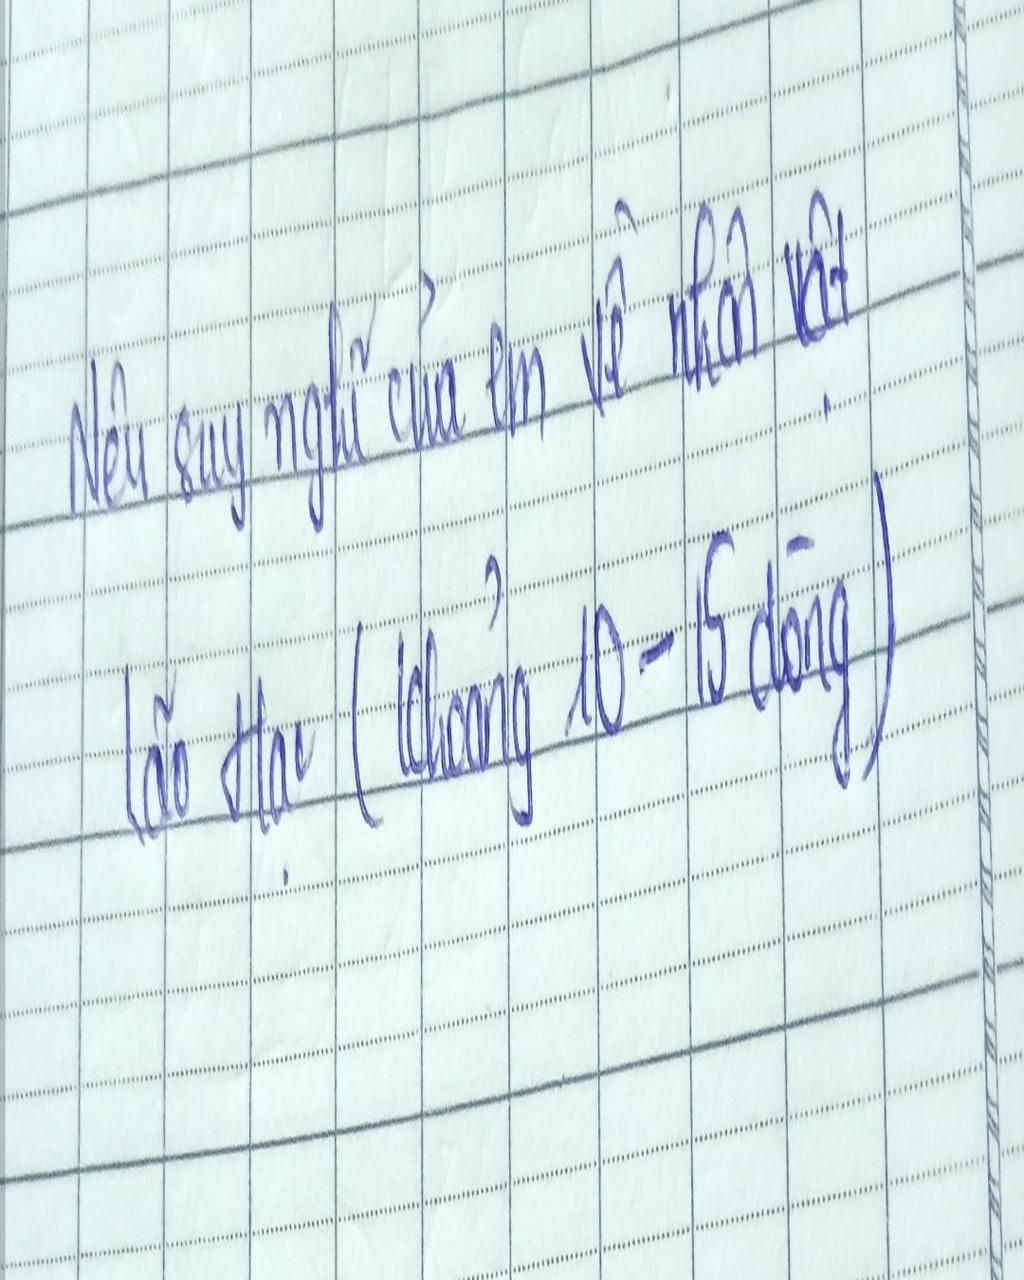 Nêu suy nghĩ của em về nhân vật
Lão Hạc (khoảng 10 - 15 dòng)